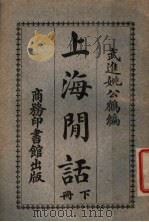 武進姚公鶴編
上海閒話
下冊
商務印書館出版